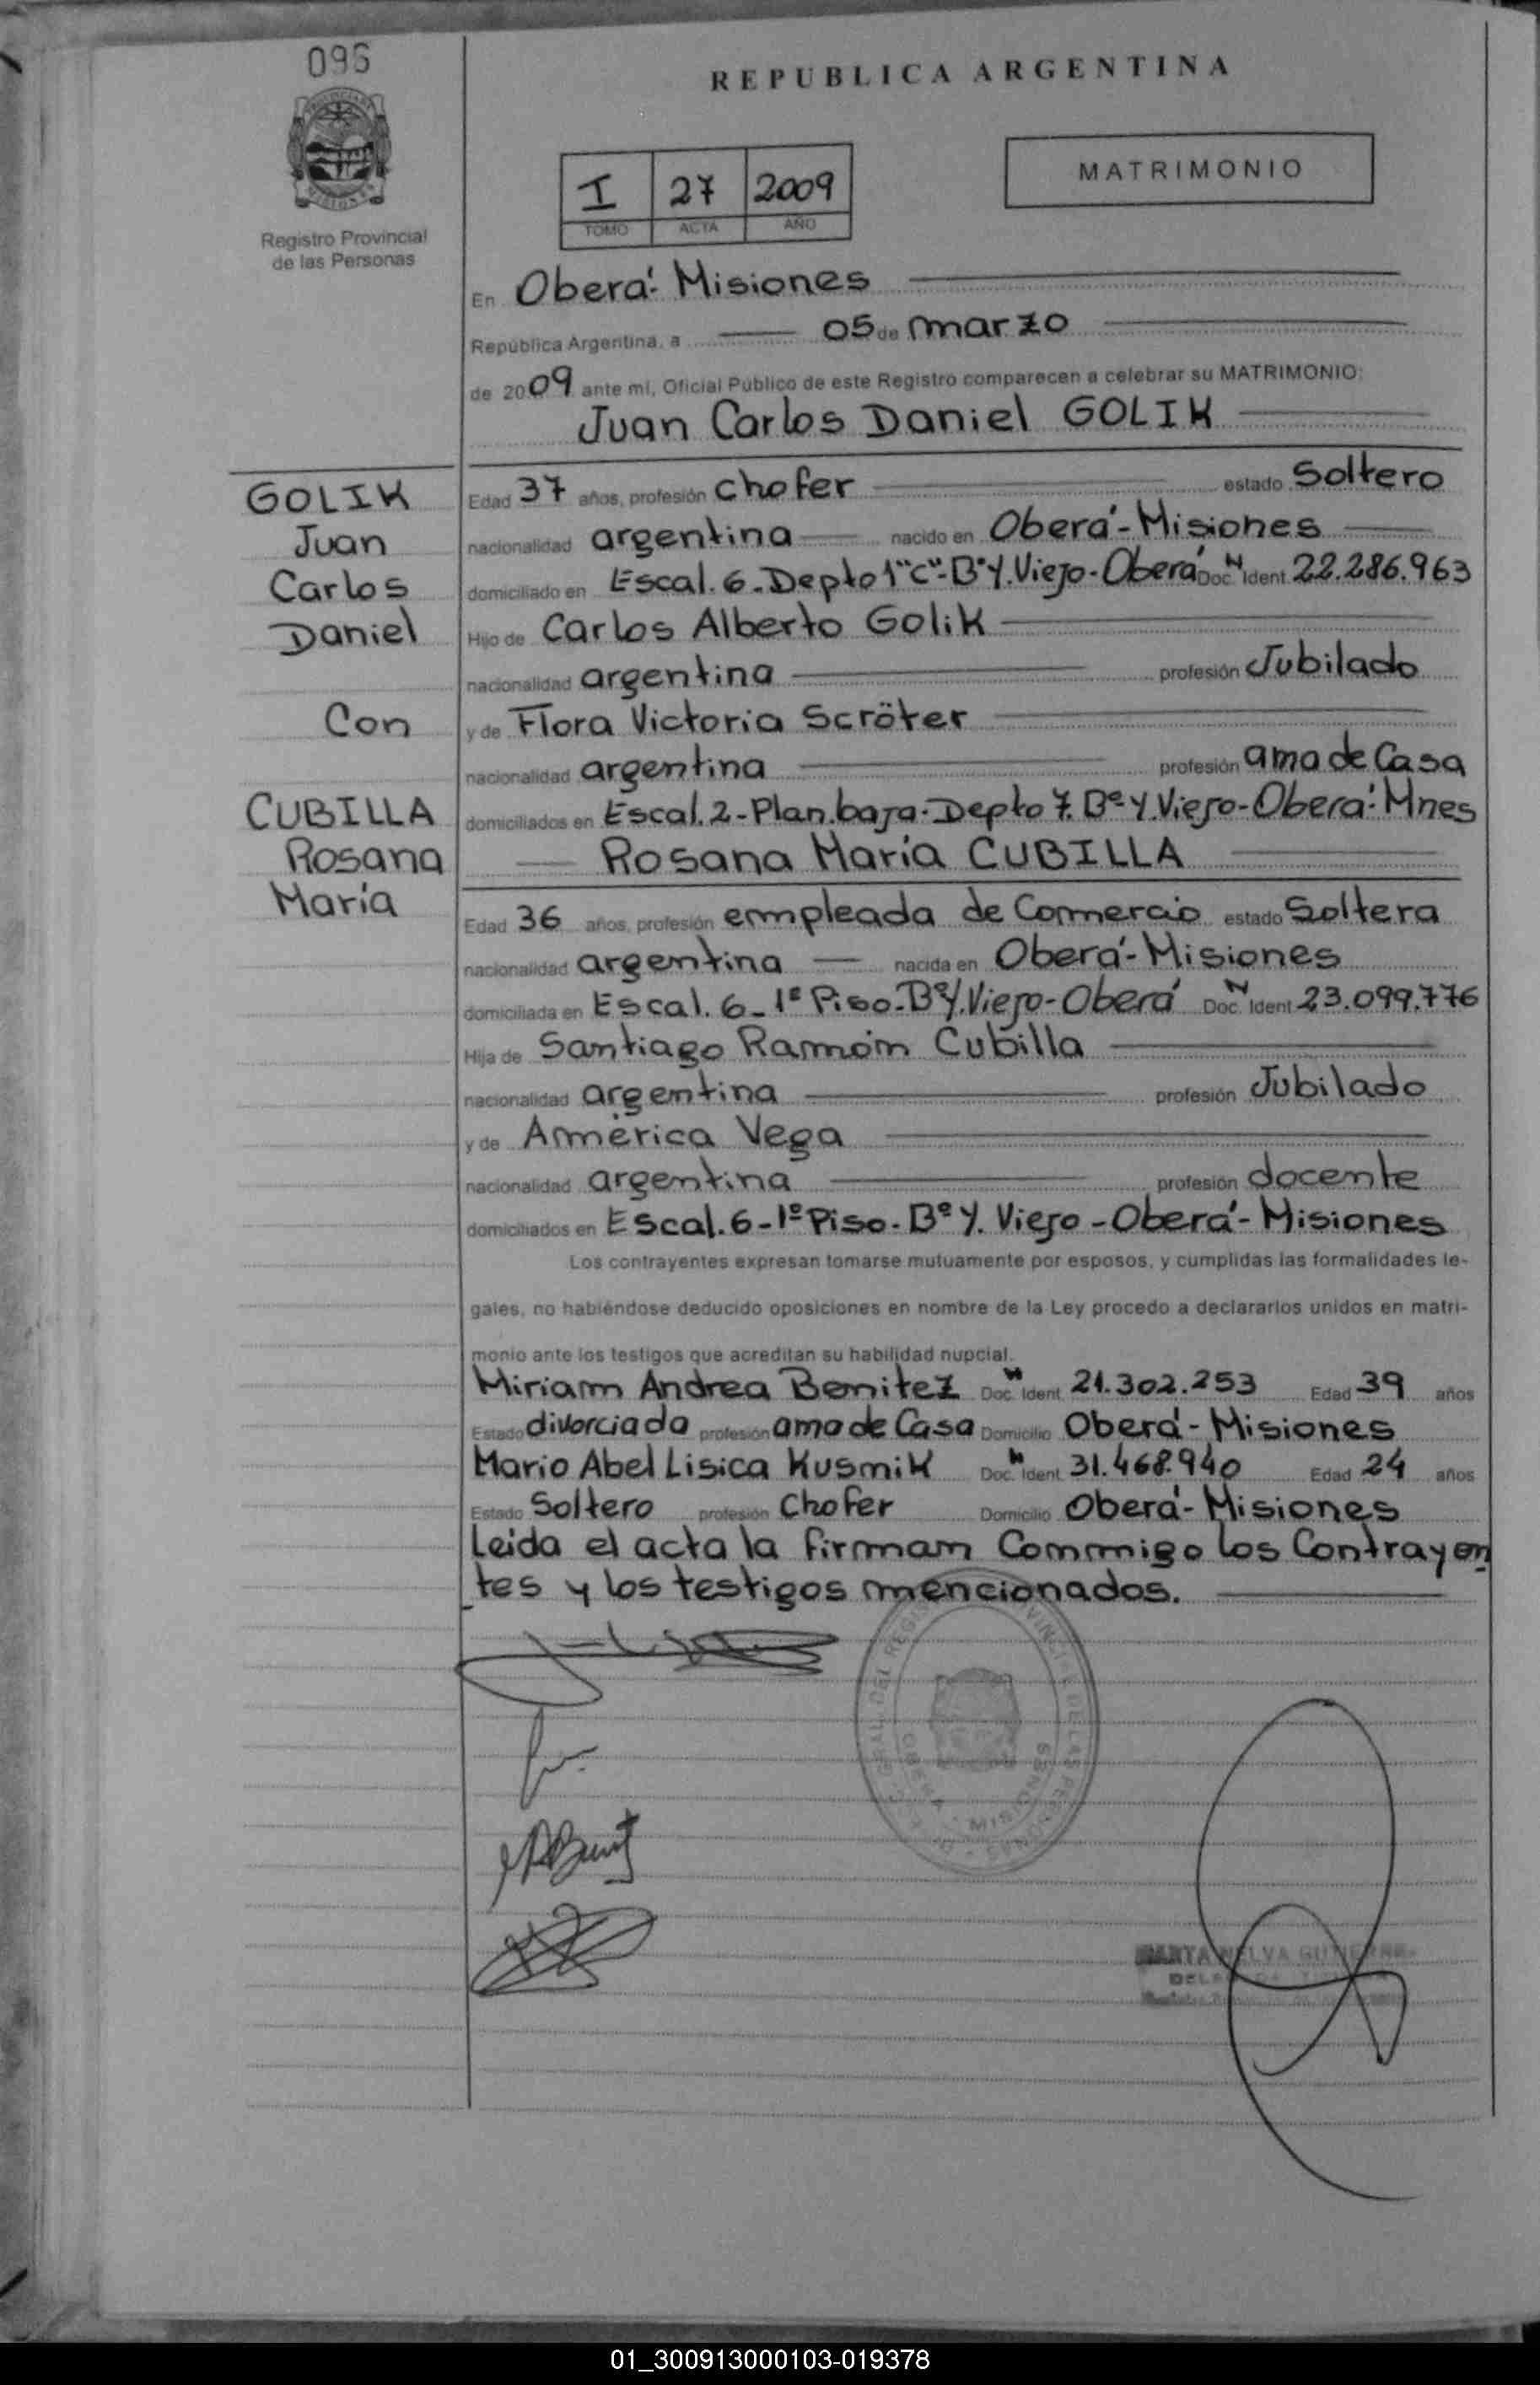 096
REPUBLICA ARGENTINA
I 27 2009
TOMO ACTA AÑO
MATRIMONIO
Registro Provincial
de las Personas
En Oberá- Misiones
República Argentina, a 05 de marzo
de 2009 ante mí, Oficial Público de este Registro comparecen a celebrar su MATRIMONIO:
Juan Carlos Daniel GOLIK
GOLIK
Juan
Carlos
Daniel
Con
CUBILLA
Rosana
María
Edad 37 años, profesión chofer estado Soltero
nacionalidad argentina nacido en Oberá-Misiones
domiciliado en Escal. 6-Depto 1"C"-Bº Y.Viejo-Oberá Doc. N Ident 22.286.963
Hijo de Carlos Alberto Golik
nacionalidad argentina profesión Jubilado
y de Flora Victoria Scröter
nacionalidad argentina profesión ama de Casa
domiciliados en Escal.2-Plan.baja-Depto 7. Bº Y.Viejo-Oberá-Mnes
Rosana María CUBILLA
Edad 36 años, profesión empleada de Comercio estado Soltera
nacionalidad argentina nacida en Oberá-Misiones
domiciliada en Escal. 6-1º Piso-Bº Y.Viejo-Oberá Doc. N Ident 23.099.776
Hija de Santiago Ramón Cubilla
nacionalidad argentina profesión Jubilado
y de América Vega
nacionalidad argentina profesión docente
domiciliados en Escal.6-1º Piso-Bº Y. Viejo-Oberá-Misiones
Los contrayentes expresan tomarse mutuamente por esposos, y cumplidas las formalidades le-
gales, no habiéndose deducido oposiciones en nombre de la Ley procedo a declararlos unidos en matri-
monio ante los testigos que acreditan su habilidad nupcial.
Miriam Andrea Benitez Doc. N Ident 21.302.253 Edad 39 años
Estado divorciada profesión ama de Casa Domicilio Oberá-Misiones
Mario Abel Lisica Kusmik Doc. N Ident 31.468.940 Edad 24 años
Estado Soltero profesión Chofer Domicilio Oberá-Misiones
Leída el acta la firman Conmigo los Contrayen
tes y los testigos mencionados.
OBERA MISIONES
01_300913000103-019378